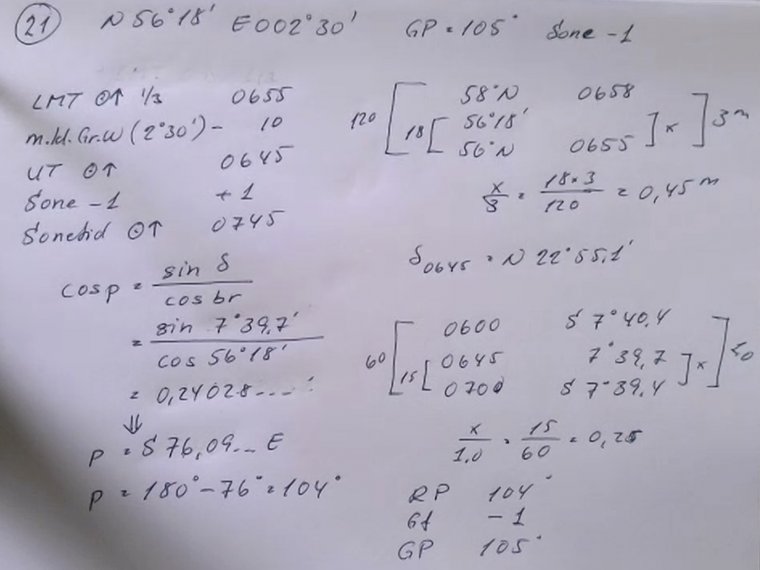 21 N 56°18' E 002°30' GP = 105° Sone -1
LMT ⊙↑ 1/3 0655
m.kl.Gr.W (2°30') - 10
UT ⊙↑ 0645
Sone -1 + 1
Sonetid ⊙↑ 0745
120 [ 58°N 0658 ] 3m
18 [ 56°18' ] x
56°N 0655
x/3 = 18×3/120 = 0,45m
δ0645 = N 22°55,1'
cos p = sin δ / cos br
= sin 7°39,7' / cos 56°18'
= 0,24028....
⇓
p = S 76,09... E
p = 180° - 76° = 104°
0600 S 7°40,4
60 [ 15 [ 0645 7°39,7 ] x ]
0700 S 7°39,4
x/1,0 = 15/60 = 0,25
RP 104°
- 1
GP 105°